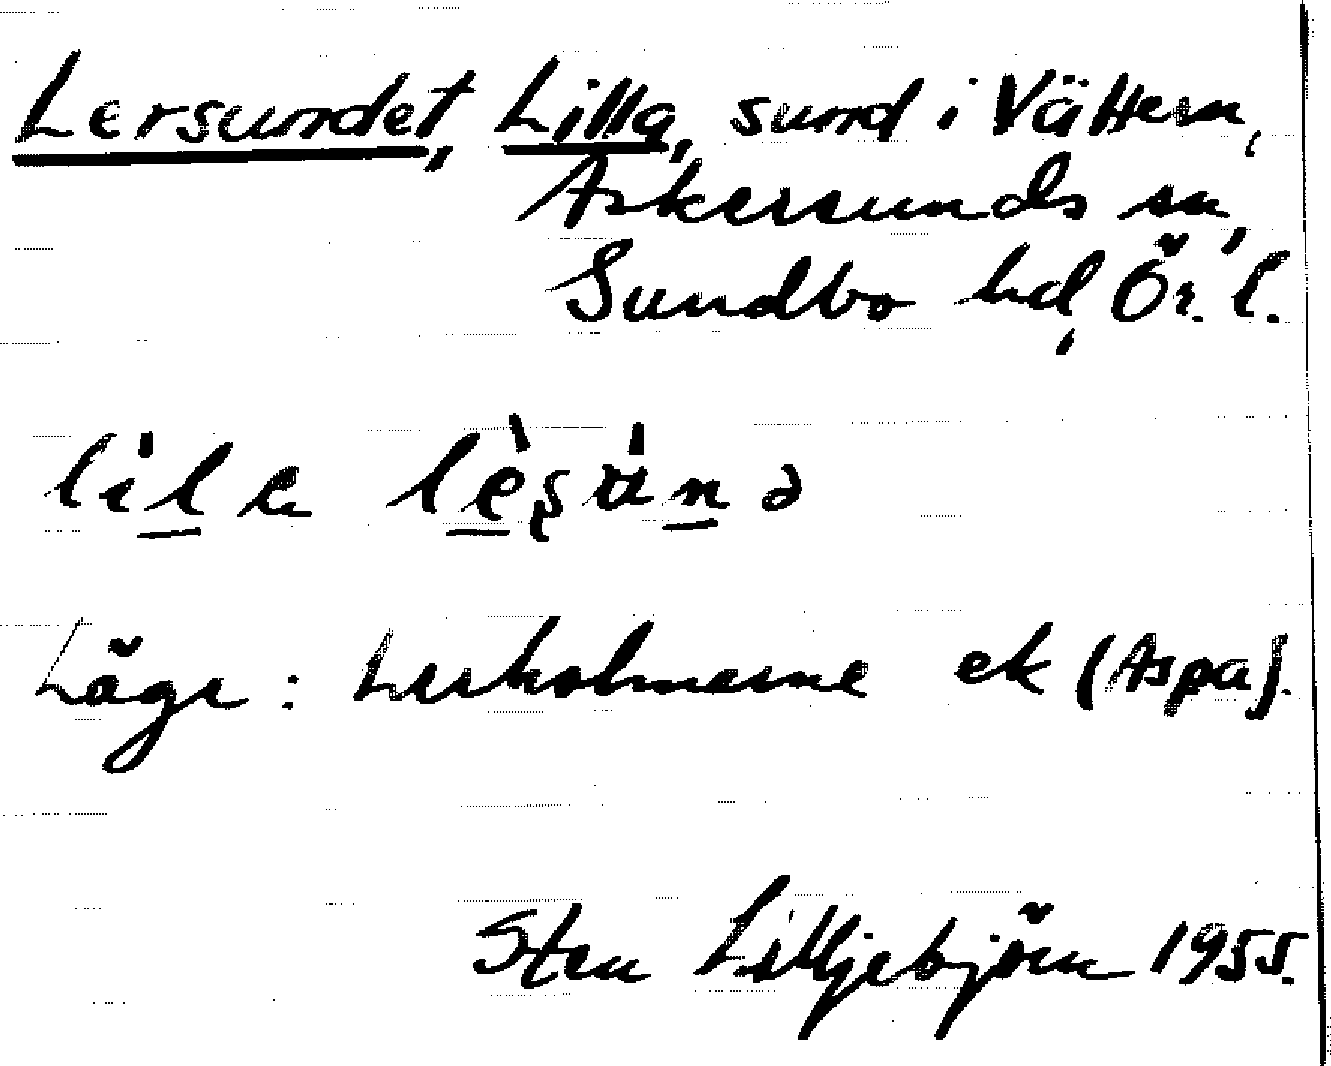 Lersundet, Lilla, sund i Vättern,
Askersunds sn,
Sundbo hd, Ör. l.
Läge: Lerholmarne ek (Aspa).
Sten Lilljebjörn 1955.